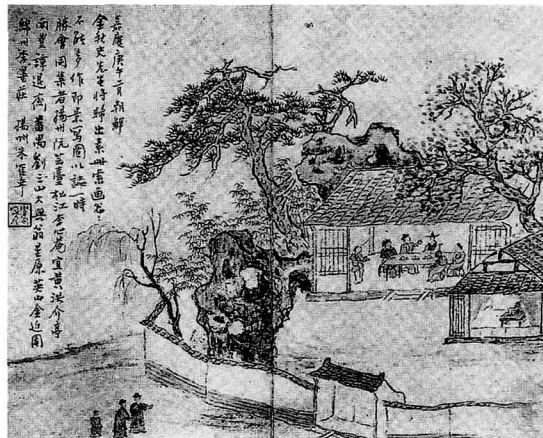 嘉慶庚午二月朝鮮
金秋史先生將歸出素冊索画怱〻
不能多作即景寫圖以誌一時
勝會同集者揚州阮芸臺松江李心庵宜黃洪介亭
南豐譚退齋番禺劉三山大興翁星原英山金近園
綿州李墨莊 揚州朱鶴年